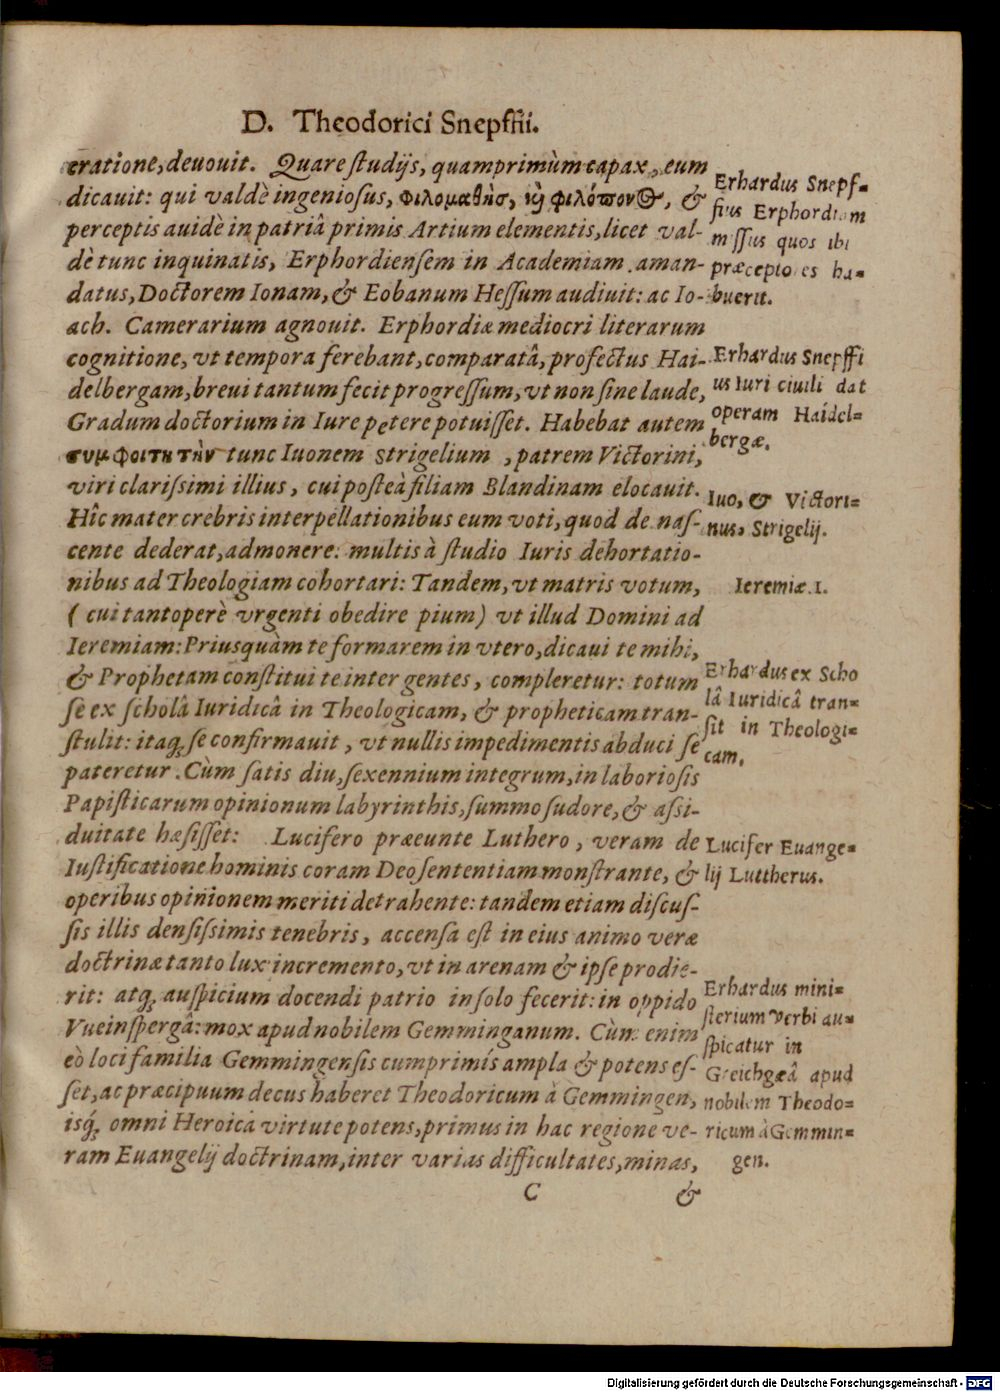 D. Theodorici Snepffii.
eratione, deuouit. Quare studijs, quamprimùm capax, eum
dicauit: qui valdè ingeniosus, Φιλομαθὴς, καὶ φιλόπονος, &
perceptis auidè in patriâ primis Artium elementis, licet val-
dè tunc inquinatis, Erphordiensem in Academiam aman-
datus, Doctorem Ionam, & Eobanum Hessum audiuit: ac Io-
ach. Camerarium agnouit. Erphordiæ mediocri literarum
cognitione, vt tempora ferebant, comparatâ, profectus Hai-
delbergam, breui tantum fecit progressum, vt non sine laude,
Gradum doctorium in Iure petere potuisset. Habebat autem
συμφοιτητὴν tunc Iuonem Strigelium, patrem Victorini,
viri clarissimi illius, cui posteà filiam Blandinam elocauit.
Hîc mater crebris interpellationibus eum voti, quod de nas-
cente dederat, admonere: multis à studio Iuris dehortatio-
nibus ad Theologiam cohortari: Tandem, vt matris votum,
(cui tantoperè vrgenti obedire pium) vt illud Domini ad
Ieremiam: Priusquàm te formarem in vtero, dicaui te mihi,
& Prophetam constitui te inter gentes, compleretur: totum
sè ex scholâ Iuridicâ in Theologicam, & propheticam tran-
stulit: itaq; se confirmauit, vt nullis impedimentis abduci se
pateretur. Cùm satis diu, sexennium integrum, in laboriosis
Papisticarum opinionum labyrinthis, summo sudore, & assi-
duitate hæsisset: Lucifero præeunte Luthero, veram de
Iustificatione hominis coram Deo sententiam monstrante, &
operibus opinionem meriti detrahente: tandem etiam discus-
sis illis densissimis tenebris, accensa est in eius animo veræ
doctrinæ tanto lux incremento, vt in arenam & ipse prodie-
rit: atq; auspicium docendi patrio in solo fecerit: in oppido
Vueinspergâ: mox apud nobilem Gemminganum. Cùm enim
eò loci familia Gemmingensis cumprimis ampla & potens es-
set, ac præcipuum decus haberet Theodoricum à Gemmingen,
isq; omni Heroica virtute potens, primus in hac regione ve-
ram Euangelij doctrinam, inter varias difficultates, minas,
C &
Erhardus Snepf-
fius Erphordiam
missus quos ibi
præceptores ha-
buerit.
Erhardus Snepffi
us Iuri ciuili dat
operam Haidel-
bergæ.
Iuo, & Victori-
nus, Strigelij.
Ieremiæ. 1.
Erhardus ex Scho
lâ Iuridicâ tran-
sit in Theologi-
cam.
Lucifer Euange-
lij Luttherus.
Erhardus mini-
sterium verbi au-
spicatur in
Greichgæâ apud
nobilem Theodo-
ricum à Gemmin-
gen.
Digitalisierung gefördert durch die Deutsche Forschungsgemeinschaft - DFG